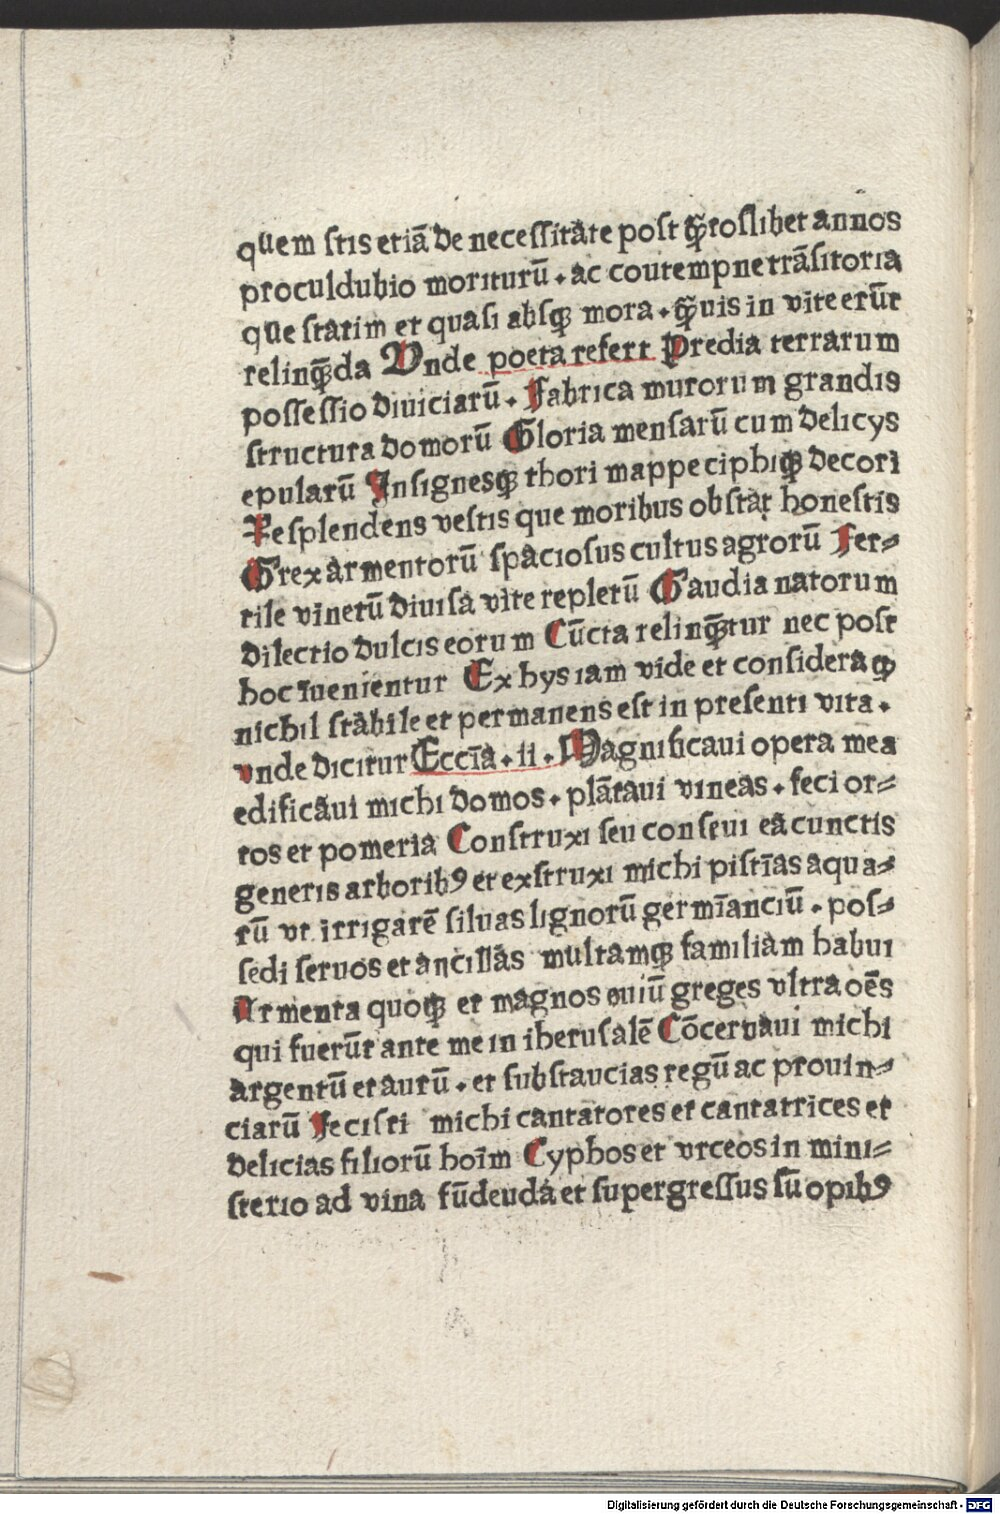 quem scis etiā de necessitate post qͣ̄toslibet annos
proculdubio moriturū . ac contempne trāsitoria
que statim et quasi absqꝫ mora . qͣ̄uis in vite erūt
relinqͣ̄da Unde poeta refert Predia terrarum
possessio diuiciarū . Fabrica murorum grandis
structura domorū Gloria mensarū cum delicys
epularū Insignesqꝫ thori mappe ciphiqꝫ decori
Resplendens vestis que moribus obstat honestis
Grex armentorū spaciosus cultus agrorū Fer⸗
tile vinetū diuisa vite repletū Gaudia natorum
dilectio dulcis eorum Cūcta relinqͣ̄tur nec post
hoc īuenientur Ex hys iam vide et considera ꝙ
nichil stabile et permanens est in presenti vita .
vnde dicitur Eccīa . ii . Magnificaui opera mea
edificaui michi domos . plātaui vineas . feci or⸗
tos et pomeria Construxi seu conseui ea cunctis
generis arboribꝰ et exstruxi michi piscīas aqua⸗
rū vt irrigarē siluas lignorū germīanciū . pos⸗
sedi seruos et ancillas multamqꝫ familiam habui
Armenta quoqꝫ et magnos ouiū greges vltra oēs
qui fuerūt ante me in iherusalē Cōceruaui michi
argentū et aurū . et substancias regū ac prouin⸗
ciarū Fecisti michi cantatores et cantatrices et
delicias filiorū hoīm Cyphos et vrceos in mini⸗
sterio ad vina fūdenda et supergressus sū opibꝰ
Digitalisierung gefördert durch die Deutsche Forschungsgemeinschaft - DFG